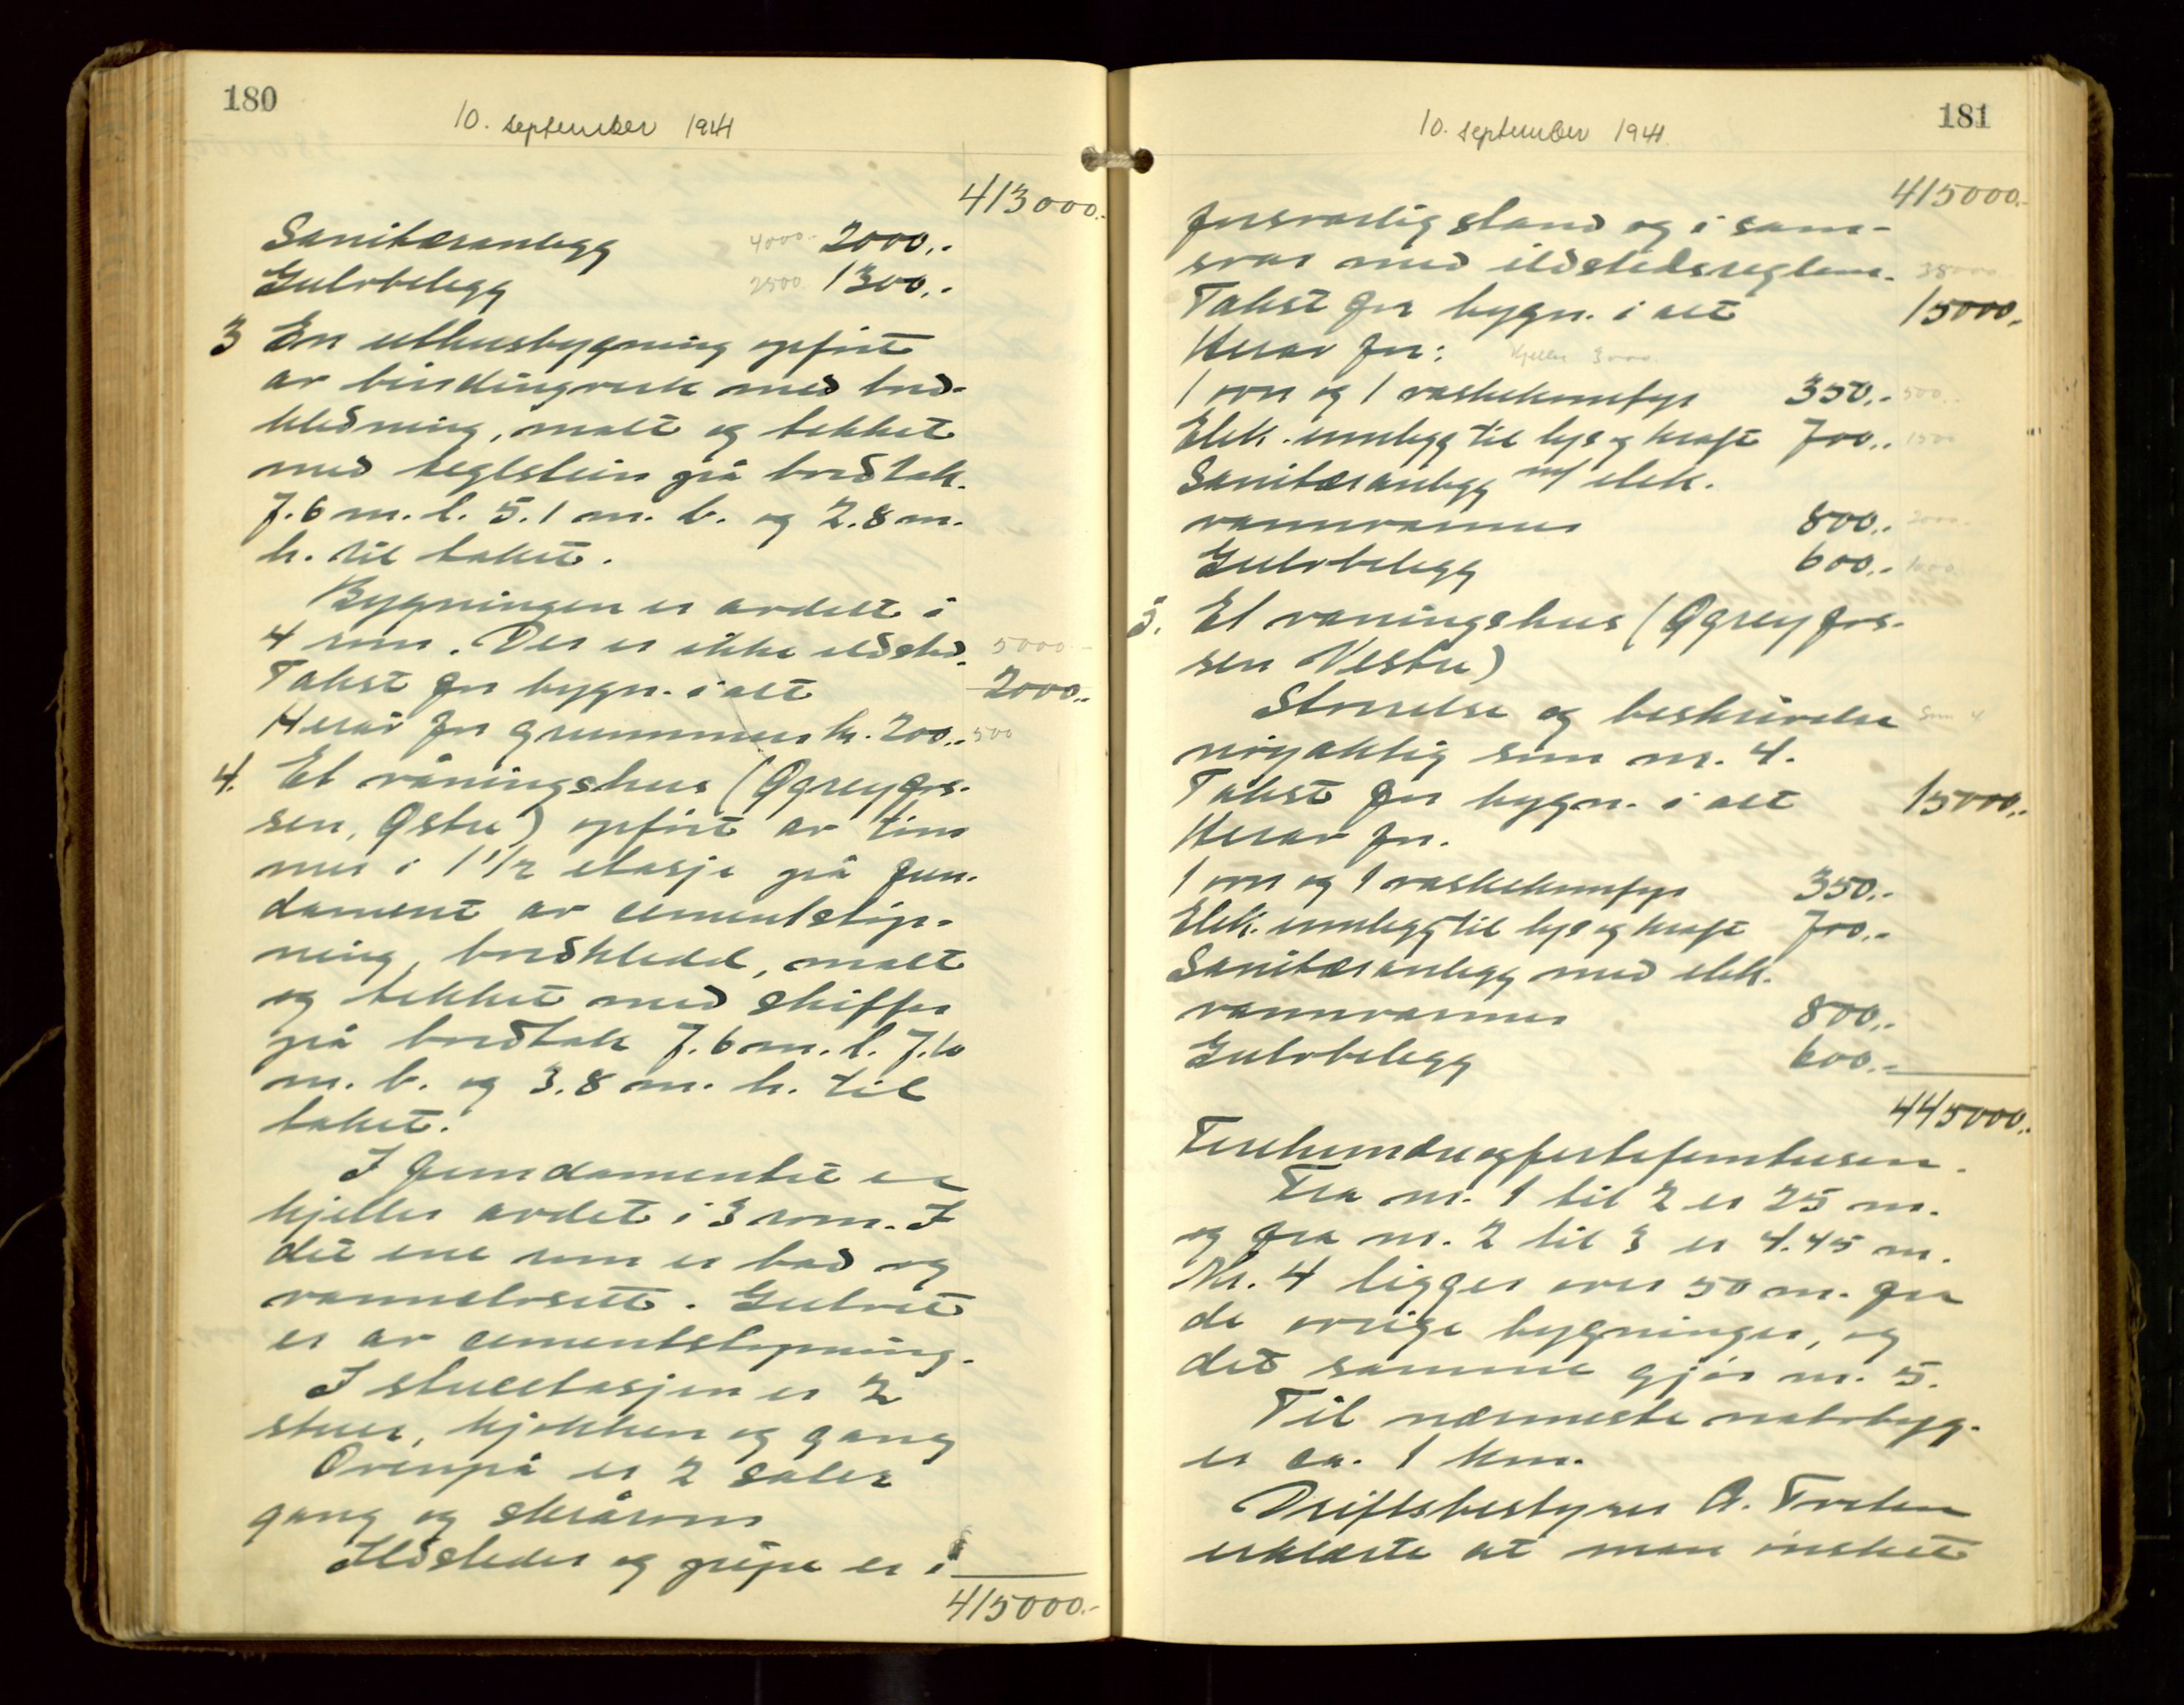 180
10. september 1941
413000.-
Sanitæranlegg 4000.- 2000.-
Gulvbelegg 2500 1300.-
3 En uthusbygning opfört
av bindingverk med bord-
kledning, malt og tekket
med teglstein på bordtak.
7.6 m. l. 5.1 m. b. og 2.8 m.
h. til taket.
Bygningen er avdelt i
4 rom. Der er ikke ildsted. 5000.-
Takst for bygn. i alt 2000.-
Herav for grunnmur kr. 200.- 500
4. Et våningshus (Øgreyfos-
sen, Østre) opfört av töm
mer i 1 1/2 etasje på fun-
dament av cementstöp-
ning, bordkledd, malt
og tekket med skiffer
på bordtak 7.6 m. l. 7.10
m. b. og 3.8 m. h. til
taket.
I fundamentet er
kjeller avdet i 3 rom. I
det ene rom er bad og
vannclosett. Gulvet
er av cementstøpning.
I stueetasjen er 2
stuer, kjøkken og gang
Ovenpå er 2 saler
gang og skrårom
Ildsteder og pipe er i
415000.-
181
10. september 1941.
415000.-
forsvarlig stand og i sam-
svar med ildstedsreglene. 38000
Takst for bygn. i alt 15000.-
Herav for: Kjeller 3000.
1 ovn og 1 vaskekomfyr 350.- 500.-
Elek. innlegg til lys og kraft 700.- 1500
Sanitæranlegg m/ elek.
vannvarmer 800.- 2000.-
Gulvbelegg 600.- 1000.
5. Et vaningshus (Øgreyfos-
sen Vestre)
Storrelse og beskrivelse som 4
nöyaktig som nr. 4.
Takst for bygn. i alt 15000.-
Herav for.
1 ovn og 1 vaskekomfyr 350.-
Elek. innlegg til lys og kraft 700.-
Sanitæranlegg med elek.
vannvarmer 800.-
Gulvbelegg 600.-
445000.-
Firehundreogførtifemtusen.
Fra nr. 1 til 2 er 25 m.
og fra nr. 2 til 3 er 4.45 m.
Nr. 4 ligger over 50 m. fra
de øvrige bygninger, og
det samme gjör nr. 5.
Til nærmeste nabobygg.
er ca. 1 km.
Driftsbestyrer A.
erklærte at man önsket